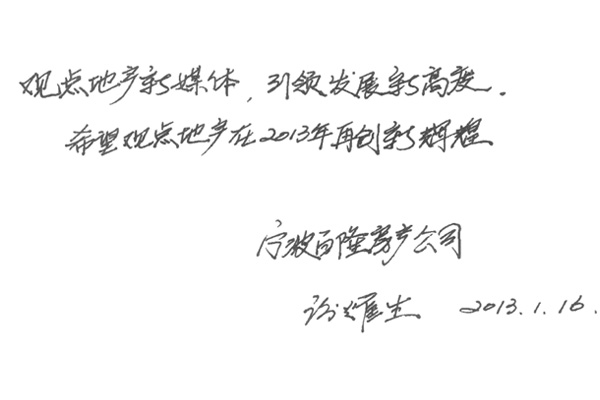 观点地产新媒体，引领发展新高度。
希望观点地产在2013年再创新辉煌
宁波百隆房产公司
2013.1.16.